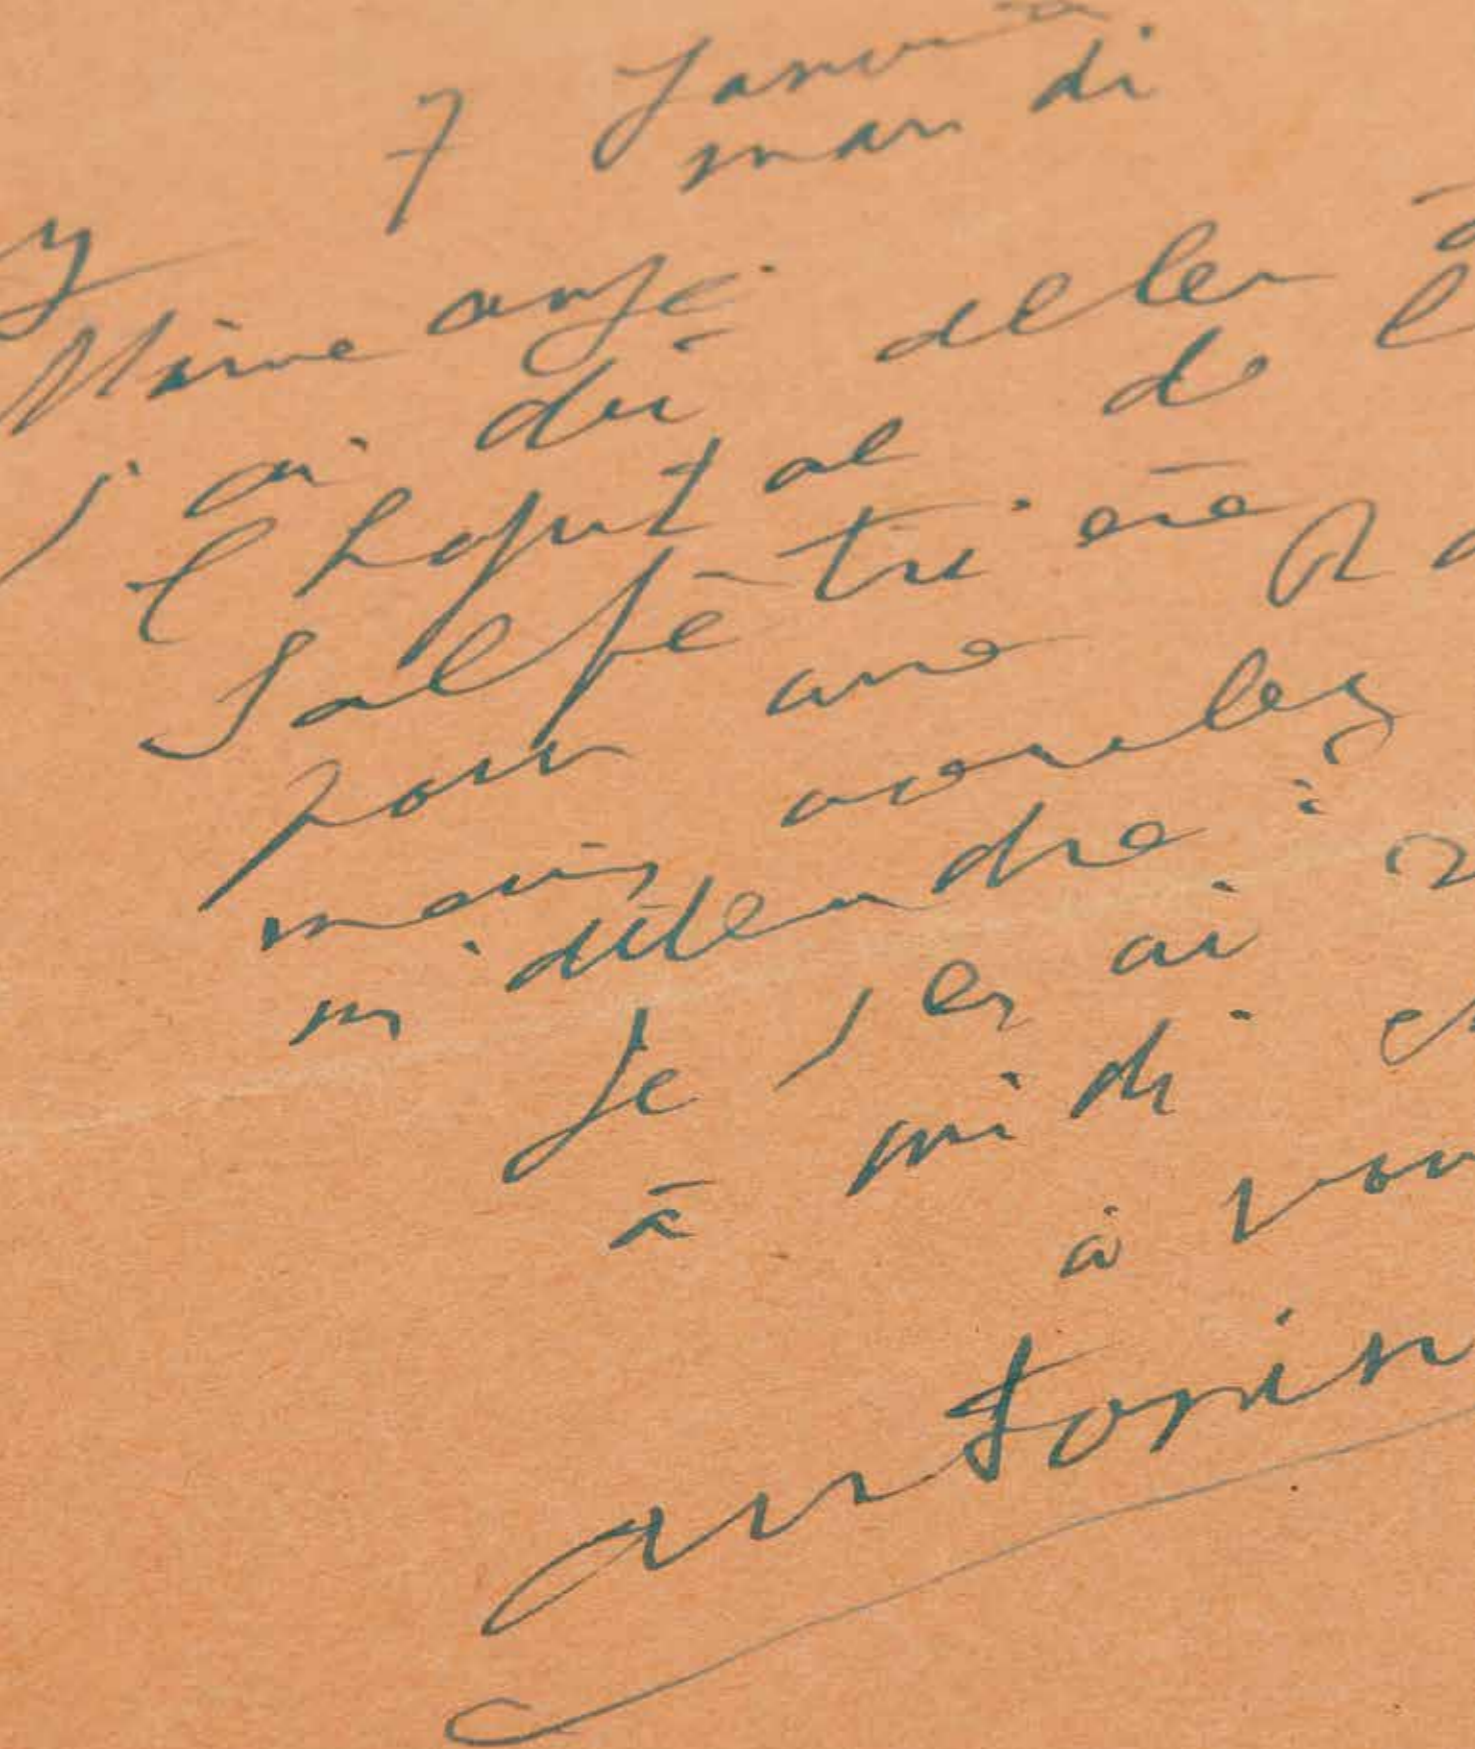 7 Janvi
mardi
Mime ange
j'ai dû aller à
l'hopital de l
Salpêtrière
pour une Ra
mais voulez
m'attendre ?
Je serai
à midi
à vou
antonin